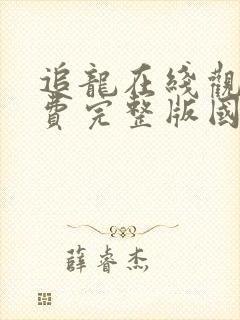 追龍在綫觀
費完整版國
薛睿杰